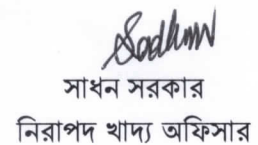 Sadhan
সাধন সরকার
নিরাপদ খাদ্য অফিসার